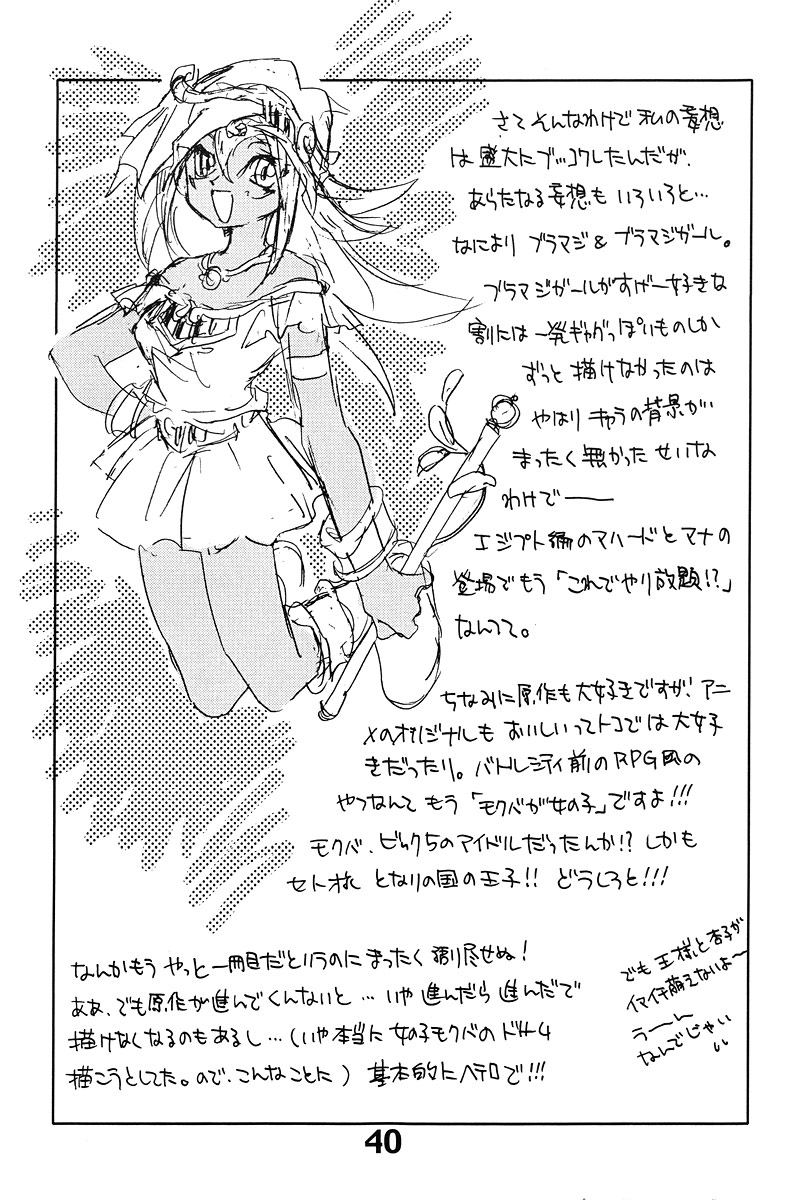 さてそんなわけで私の妄想
は盛大にブッコワしたんだが、
あらたなる妄想もいろいろと…
なにより ブラマジ & ブラマジガール。
ブラマジガールがすげー好きな
割には一発ギャグっぽいものしか
ずっと描けなかったのは
やはりキャラの背景が
まったく無かったせいな
わけで――
エジプト編のマハードとマナの
登場でもう「これでやり放題!?」
なんてて。
ちなみに原作も大好きですが、アニ
メのオリジナルもおいしいってトコでは大好
きだったり。バトルシティ前のRPG風の
やつなんてもう「モクバが女の子」ですよ!!!
モクバ、ビック5のアイドルだったんか!? しかも
セトオれ となりの国の王子!! どうしろと!!!
なんかもう やっと一冊目だというのにまったく張り尽せぬ!
ああ、でも原作が進んでくんないと… いや 進んだら 進んだで
描けなくなるのもあるし…(いや本当に 女の子モクバのドサム
描こうとしてた。ので、こんなことに) 基本的にヘテロで!!!
でも 王様と杏子が
イマイチ萌えないよ〜
うーん
なんでじゃい
40